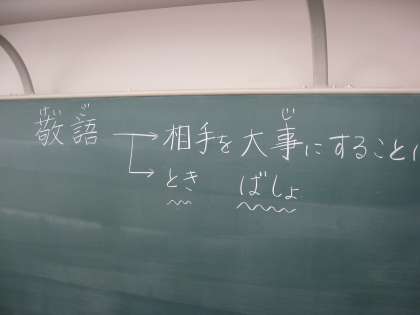 けい ご
敬語→相手を大事にすること
じ
→とき ばしょ